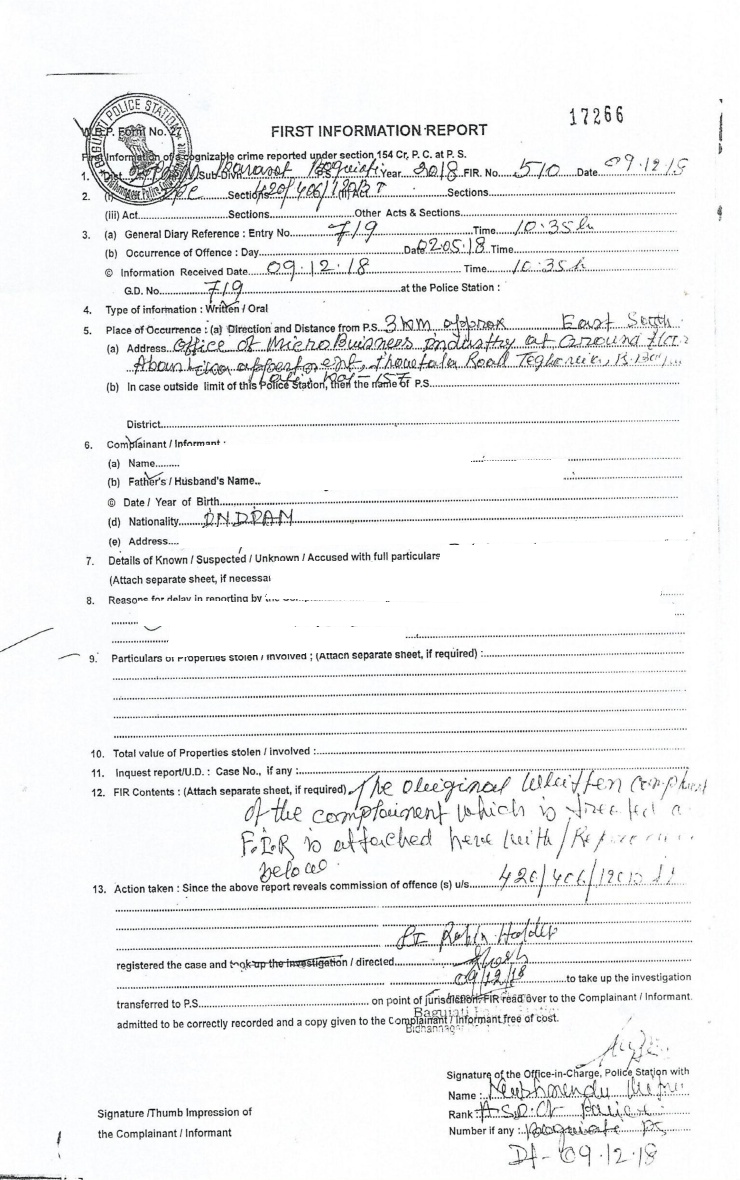 17266
BAGUIATI POLICE STATION
W.B.P. Form No. 27
FIRST INFORMATION REPORT
First Information of a cognizable crime reported under section 154 Cr. P. C. at P. S.
1. Dist. Sub-Divn. Barasat Baguiati Year 2018 FIR. No. 510 Date 09.12.18
2. (i) IPC Sections 420/406/120B (ii) Act Sections
(iii) Act Sections Other Acts & Sections
3. (a) General Diary Reference : Entry No. 719 Time 10:35 h
(b) Occurrence of Offence : Day Date 02.05.18 Time
© Information Received Date 09.12.18 Time 10:35 h
G.D. No. 719 at the Police Station :
4. Type of information : Written / Oral
5. Place of Occurrence : (a) Direction and Distance from P.S. 3 km approx East South
(a) Address Office of Micro Buisness industry at Ground floor
Road Teghoria,
(b) In case outside limit of this Police Station, then the name of P.S.
District
6. Complainant / Informant
(a) Name
(b) Father's / Husband's Name
© Date / Year of Birth
(d) Nationality INDIAN
(e) Address
7. Details of Known / Suspected / Unknown / Accused with full particulars
(Attach separate sheet, if necessar
8. Reasons for delay in reporting by
9. Particulars of Properties stolen / involved ; (Attach separate sheet, if required) :
10. Total value of Properties stolen / involved :
11. Inquest report/U.D. : Case No., if any :
12. FIR Contents : (Attach separate sheet, if required) The original written
of the complainent which is treated a
F.I.R is attached here with
below.
13. Action taken : Since the above report reveals commission of offence (s) u/s. 420/406/120B
SI Robin Halder
registered the case and took up the investigation / directed
09/12/18 to take up the investigation
transferred to P.S. on point of jurisdiction FIR read over to the Complainant / Informant.
admitted to be correctly recorded and a copy given to the Complainant / Informant free of cost.
Baguiati
Signature of the Office-in-Charge, Police Station with
Name :
Signature /Thumb Impression of
Rank
the Complainant / Informant
Number if any : Baguiati PS
Dt- 09.12.18